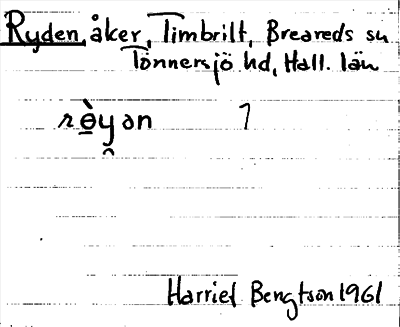 Ryden, åker, Timbrilt, Breareds sn
Tönnersjö hd, Hall. län
rѳ̀y̯ən 7
Harriet Bengtson 1961